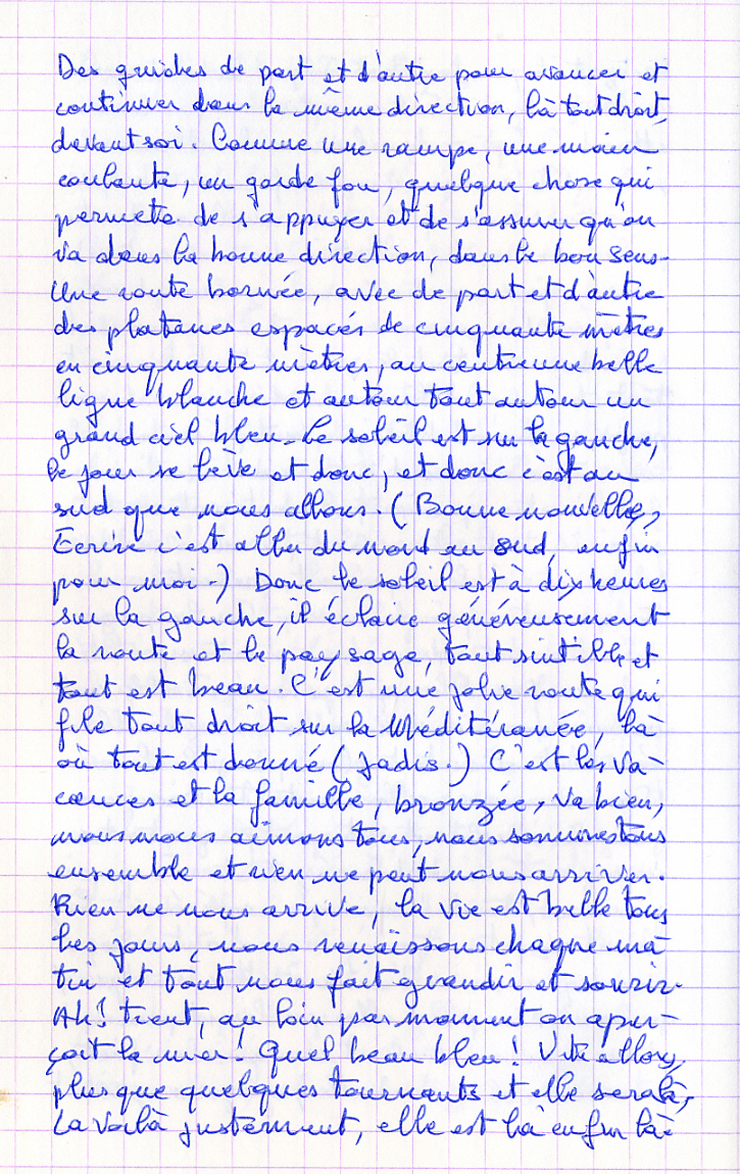 Des guides de part et d'autre pour avancer et
continuer dans la même direction, là tout droit,
devant soi. Comme une rampe, une main
coulante, un garde fou, quelque chose qui
permette de s'appuyer et de s'assurer qu'on
va dans la bonne direction, dans le bon sens.
Une route bornée, avec de part et d'autre
des platanes espacés de cinquante mètres
en cinquante mètres, au centre une belle
ligne blanche et autour tout autour un
grand ciel bleu. Le soleil est sur la gauche,
le jour se lève et donc, et donc c'est au
sud que nous allons. (Bonne nouvelle,
Ecrire c'est aller du nord au sud, enfin
pour moi.) Donc le soleil est à dix heures
sur la gauche, il éclaire généreusement
la route et le paysage, tout est
tout est beau. C'est une jolie route qui
file tout droit sur la Méditéranée, là
où tout est donné (Jadis.) C'est les va-
cances et la famille, bronzée, va bien,
nous nous aimons tous, nous sommes tous
ensemble et rien ne peut nous arriver.
Rien ne nous arrive, la vie est belle tous
les jours, nous renaissons chaque ma-
tin et tout nous fait grandir et sourir.
Ah! tient, au loin par moment on aper-
çoit la mer! Quel beau bleu! Vite allons,
plus que quelques tournants et elle sera là,
La voilà justement, elle est là enfin là